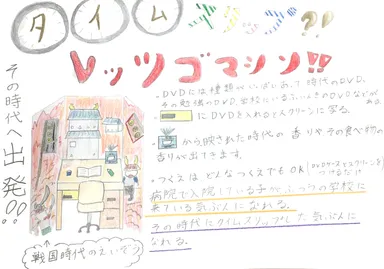 タイムマシン?!
レッツゴマシン!!
その時代へ出発!!
・DVDには種類がいっぱいあって時代のDVD、
その勉強のDVD、出校しているふんいきのDVDなどがある
にDVDを入れるとスクリーンに写る。
・から映された時代の香りやその食べ物の
香りが出てきます。
・つくえはどんなつくえでもOK(DVDケースとスクリーンをつけるだけ)
病院で入院している子がふつうの学校に
来ている気ぶんになれる。
その時代にタイムスリップした気ぶんに
なれる。
戦国時代のえいぞう